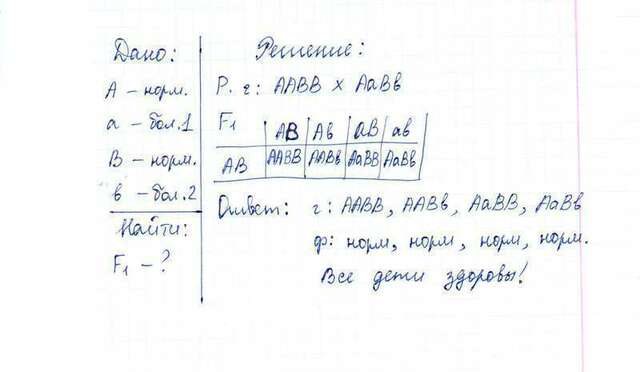 Дано:
А – норм.
а – бол.1
В – норм.
в – бол.2
Найти:
F₁ – ?
Решение:
Р. г: ААВВ х АаВв
F₁
АВ | Ав | аВ | ав
АВ | ААВВ | ААВв | АаВВ | АаВв
Ответ: г: ААВВ, ААВв, АаВВ, АаВв
ф: норм, норм, норм, норм.
Все дети здоровы!